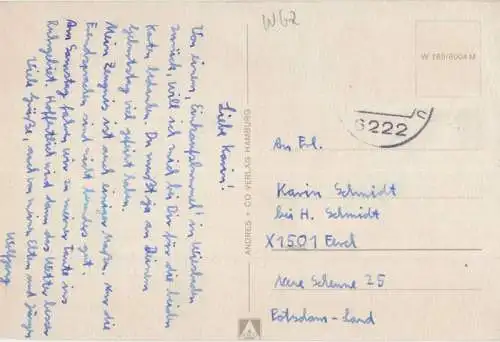 W62
Liebe Karin!
Von einem „Einkaufsbummel" in Wiesbaden
zurück, will ich mich bei Dir für die beiden
Karten bedanken. Du mußt ja an Deinem
Geburtstag viel gefeiert haben.
Mein Zeugnis ist auch einigermaßen. Nur die
Fremdsprachen sind nicht besonders gut.
Am Samstag fahren wir zu meiner Tante ins
Ruhrgebiet. Hoffentlich wird dann das Wetter besser.
Viele Grüße, auch von meinen Eltern und
Wolfgang
ANDRES + CO VERLAG HAMBURG
W 185/8004 M
6222
An Frl.
Karin Schmidt
bei H. Schmidt
X1501
Neue Scheune 25
Potsdam-Land